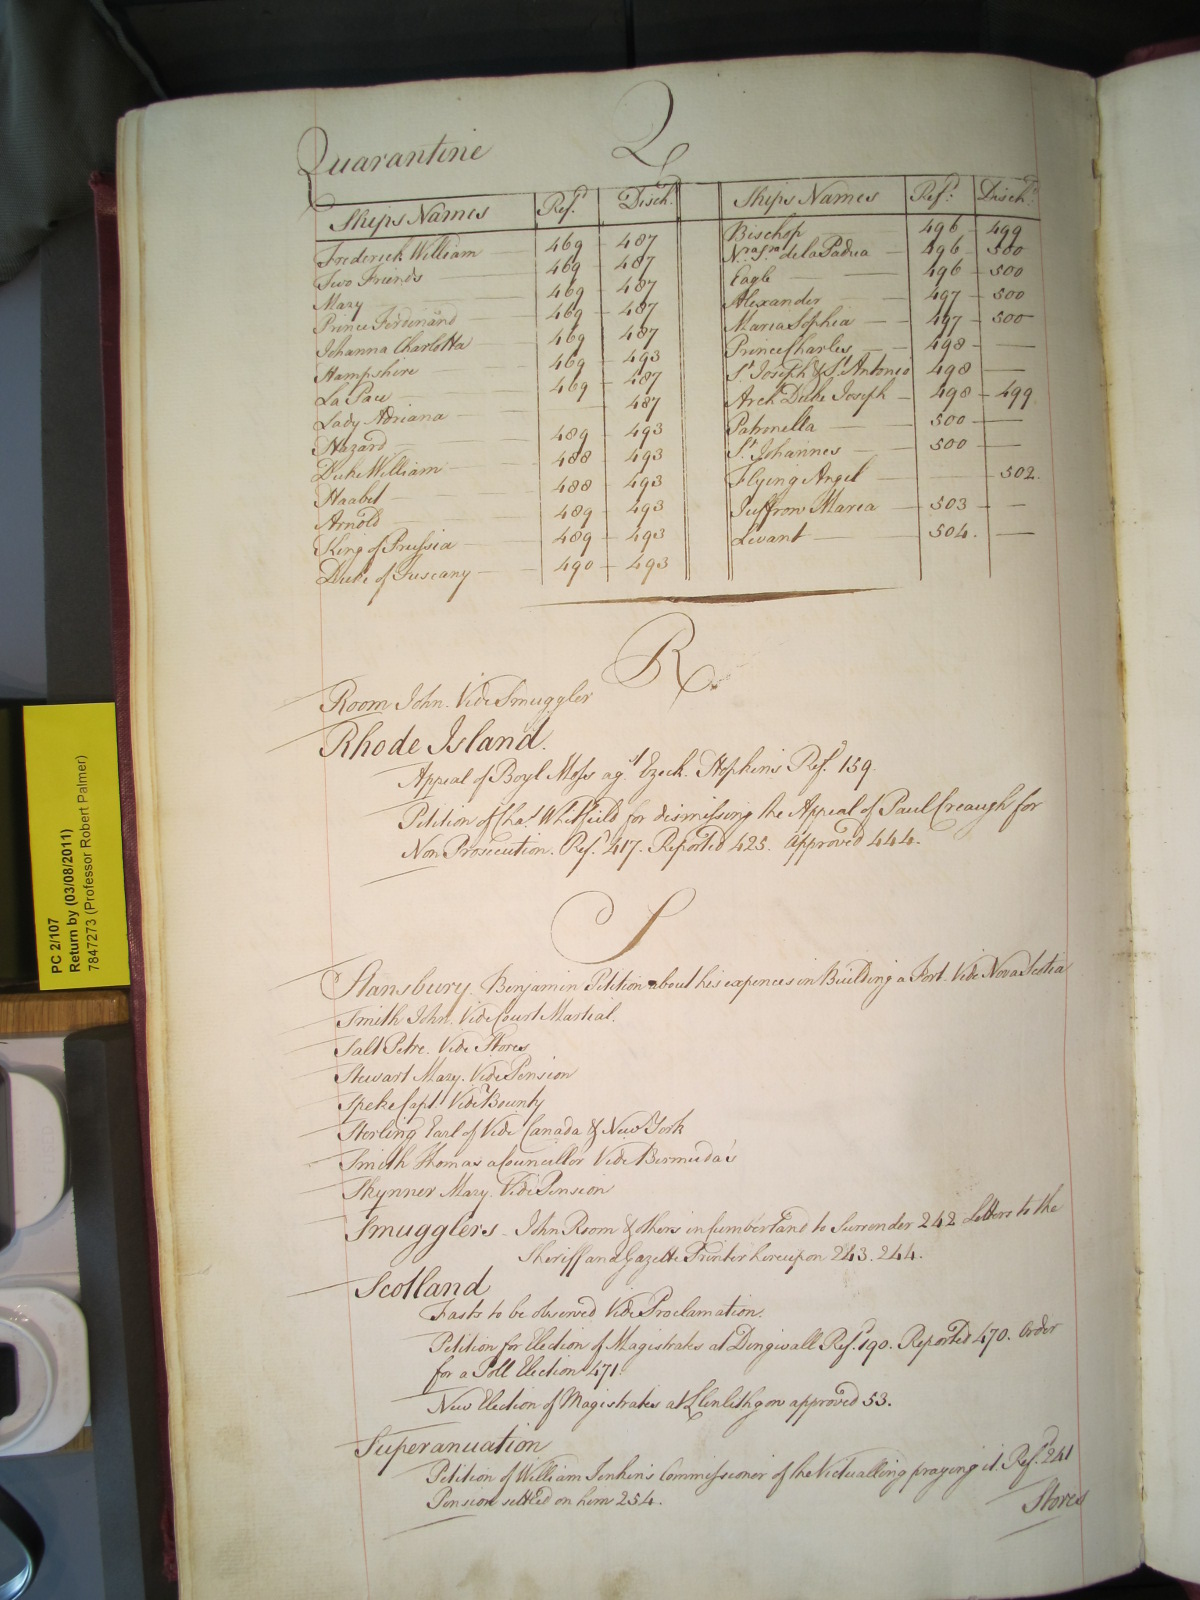 Q
Quarantine
Ships Names Ref.d Disch.d
Frederick William 469 487
Two Friends 469 487
Mary 469 487
Prince Ferdinand 469 487
Johanna Charlotta 469 487
Hampshire 469 493
La Paix 469 487
Lady Adriana 487
Hazard 489 493
Duke William 488 493
Haabet 488 493
Arnold 489 493
King of Prussia 489 493
Duke of Tuscany 490 493
Ships Names Ref.d Disch.d
Bischop 496 499
N.ra S.ra de la Padua 496 500
Eagle 496 500
Alexander 497 500
Maria Sophia 497 500
Prince Charles 498
S.t Joseph & S.t Antonio 498
Arch Duke Joseph 498 499
Patronella 500
S.t Johannes 500
Flying Angel 502.
Juffrow Maria 503
Levant 504.
R
Room John. Vide Smuggler
Rhode Island.
Appeal of Boyl Moss ag.t Ezech. Hopkins Ref.d 159.
Petition of Cha.s Whitfield for dismissing the Appeal of Paul Creaugh for
Non Prosecution. Ref.d 417. Reported 425. Approved 444.
S
Stansbury. Benjamin Petition about his expences in Building a Fort. Vide Nova Scotia
Smith John. Vide Court Martial.
Salt Petre. Vide Stores
Stewart Mary. Vide Pension
Speke Capt. Vide Bounty
Sterling Earl of Vide Canada & New York
Smith Thomas a Councillor Vide Bermuda's
Skynner Mary. Vide Pension
Smugglers. John Room & others in Cumberland to Surrender 242 Letters to the
Sheriff and Gazette Printer hereupon 243. 244.
Scotland
Fasts to be observed Vide Proclamation.
Petition for Election of Magistrates at Dingwall Ref.d 190. Reported 470. Order
for a Poll Election 471.
New Election of Magistrates at Linlithgow approved 53.
Superanuation
Petition of William Jenkins Commissioner of the Victualling praying it. Ref.d 241
Pension settled on him 254.
Stores
PC 2/107
Return by (03/08/2011)
7847273 (Professor Robert Palmer)